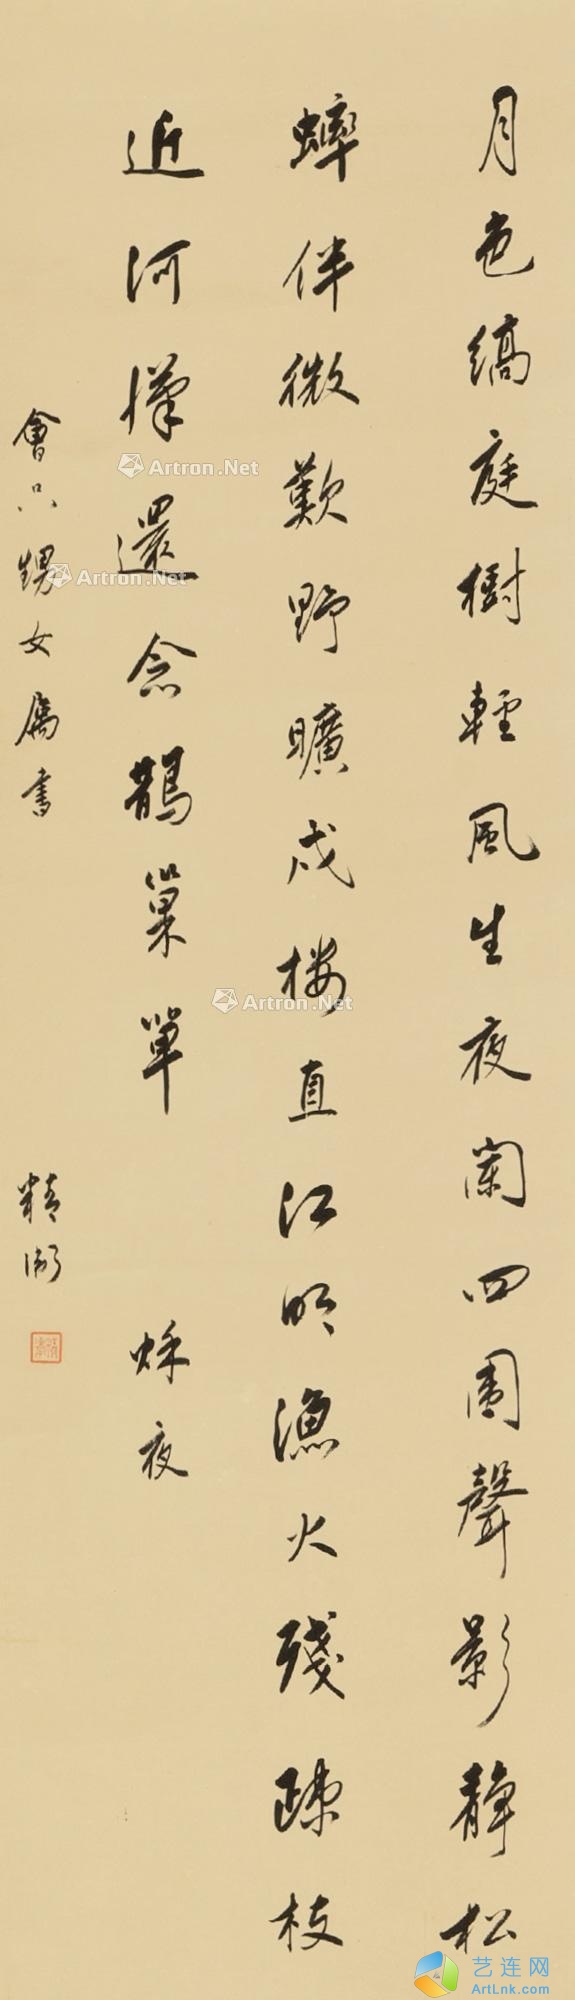 月色縞庭樹輕風生夜闌四圍聲影靜松
蟀伴微歎野曠戍楼直江明漁火殘疎枝
近河漢還念鵲巢單 烁夜
會只甥女屬書 精衛
Artron.Net
Artron.Net
Artron.Net
艺连网
ArtLnk.com